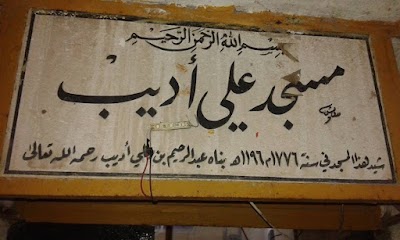 بسم الله الرحمن الرحيم
مسجد علي أديب
شيد هذا المسجد في سنة ١٧٧٦م ١١٩٦ھ بناه عبد الرحيم بن علي أديب رحمه الله تعالى